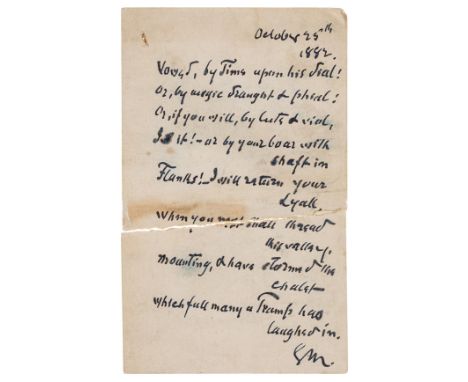 October 25th
1882.
Vowed, by Time upon his dial!
Or, by magic draught & phial!
Or, if you will, by lute & viol,
Is it! – or by your boar with
shaft in
Flanks! – I will return your
Lyall.
When you next shall thread
this valley,
mounting, & have stormed the
chalet
which full many a Tramp has
laughed in.
GM.